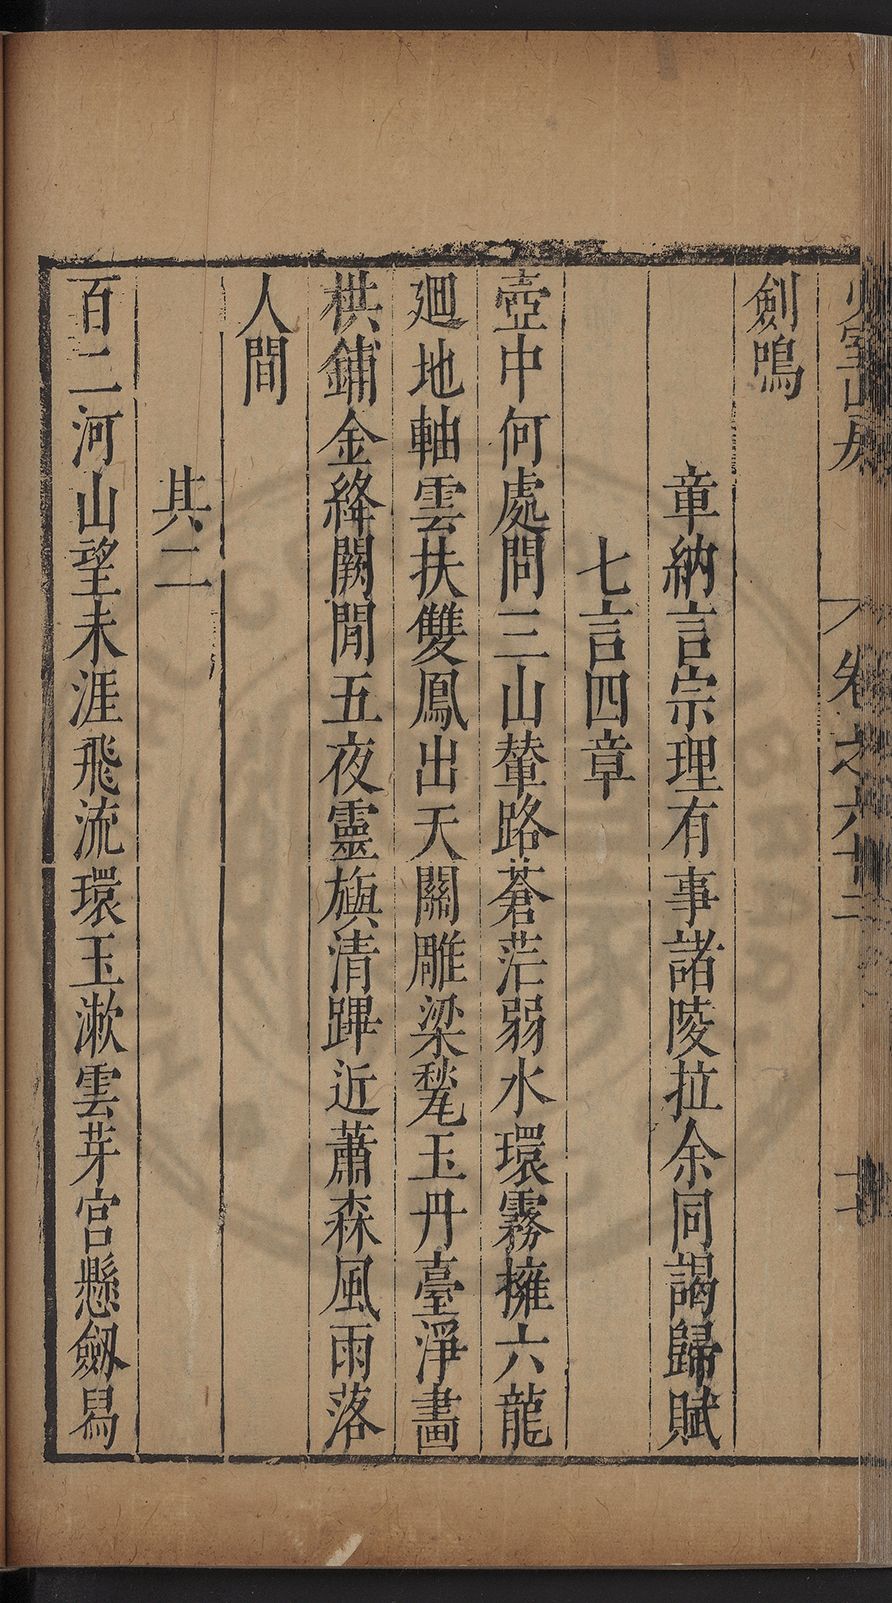 少室山房 卷之六十二 十七
劍鳴
章納言宗理有事諸陵拉余同謁歸賦
七言四章
壺中何處問三山輦路蒼茫弱水環霧擁六龍
廻地軸雲扶雙鳳出天關雕梁甃玉丹臺淨畵
栱鋪金絳闕閒五夜靈旟清蹕近蕭森風雨落
人間
其二
百二河山望未涯飛流環玉漱雲芽宮懸劔舄